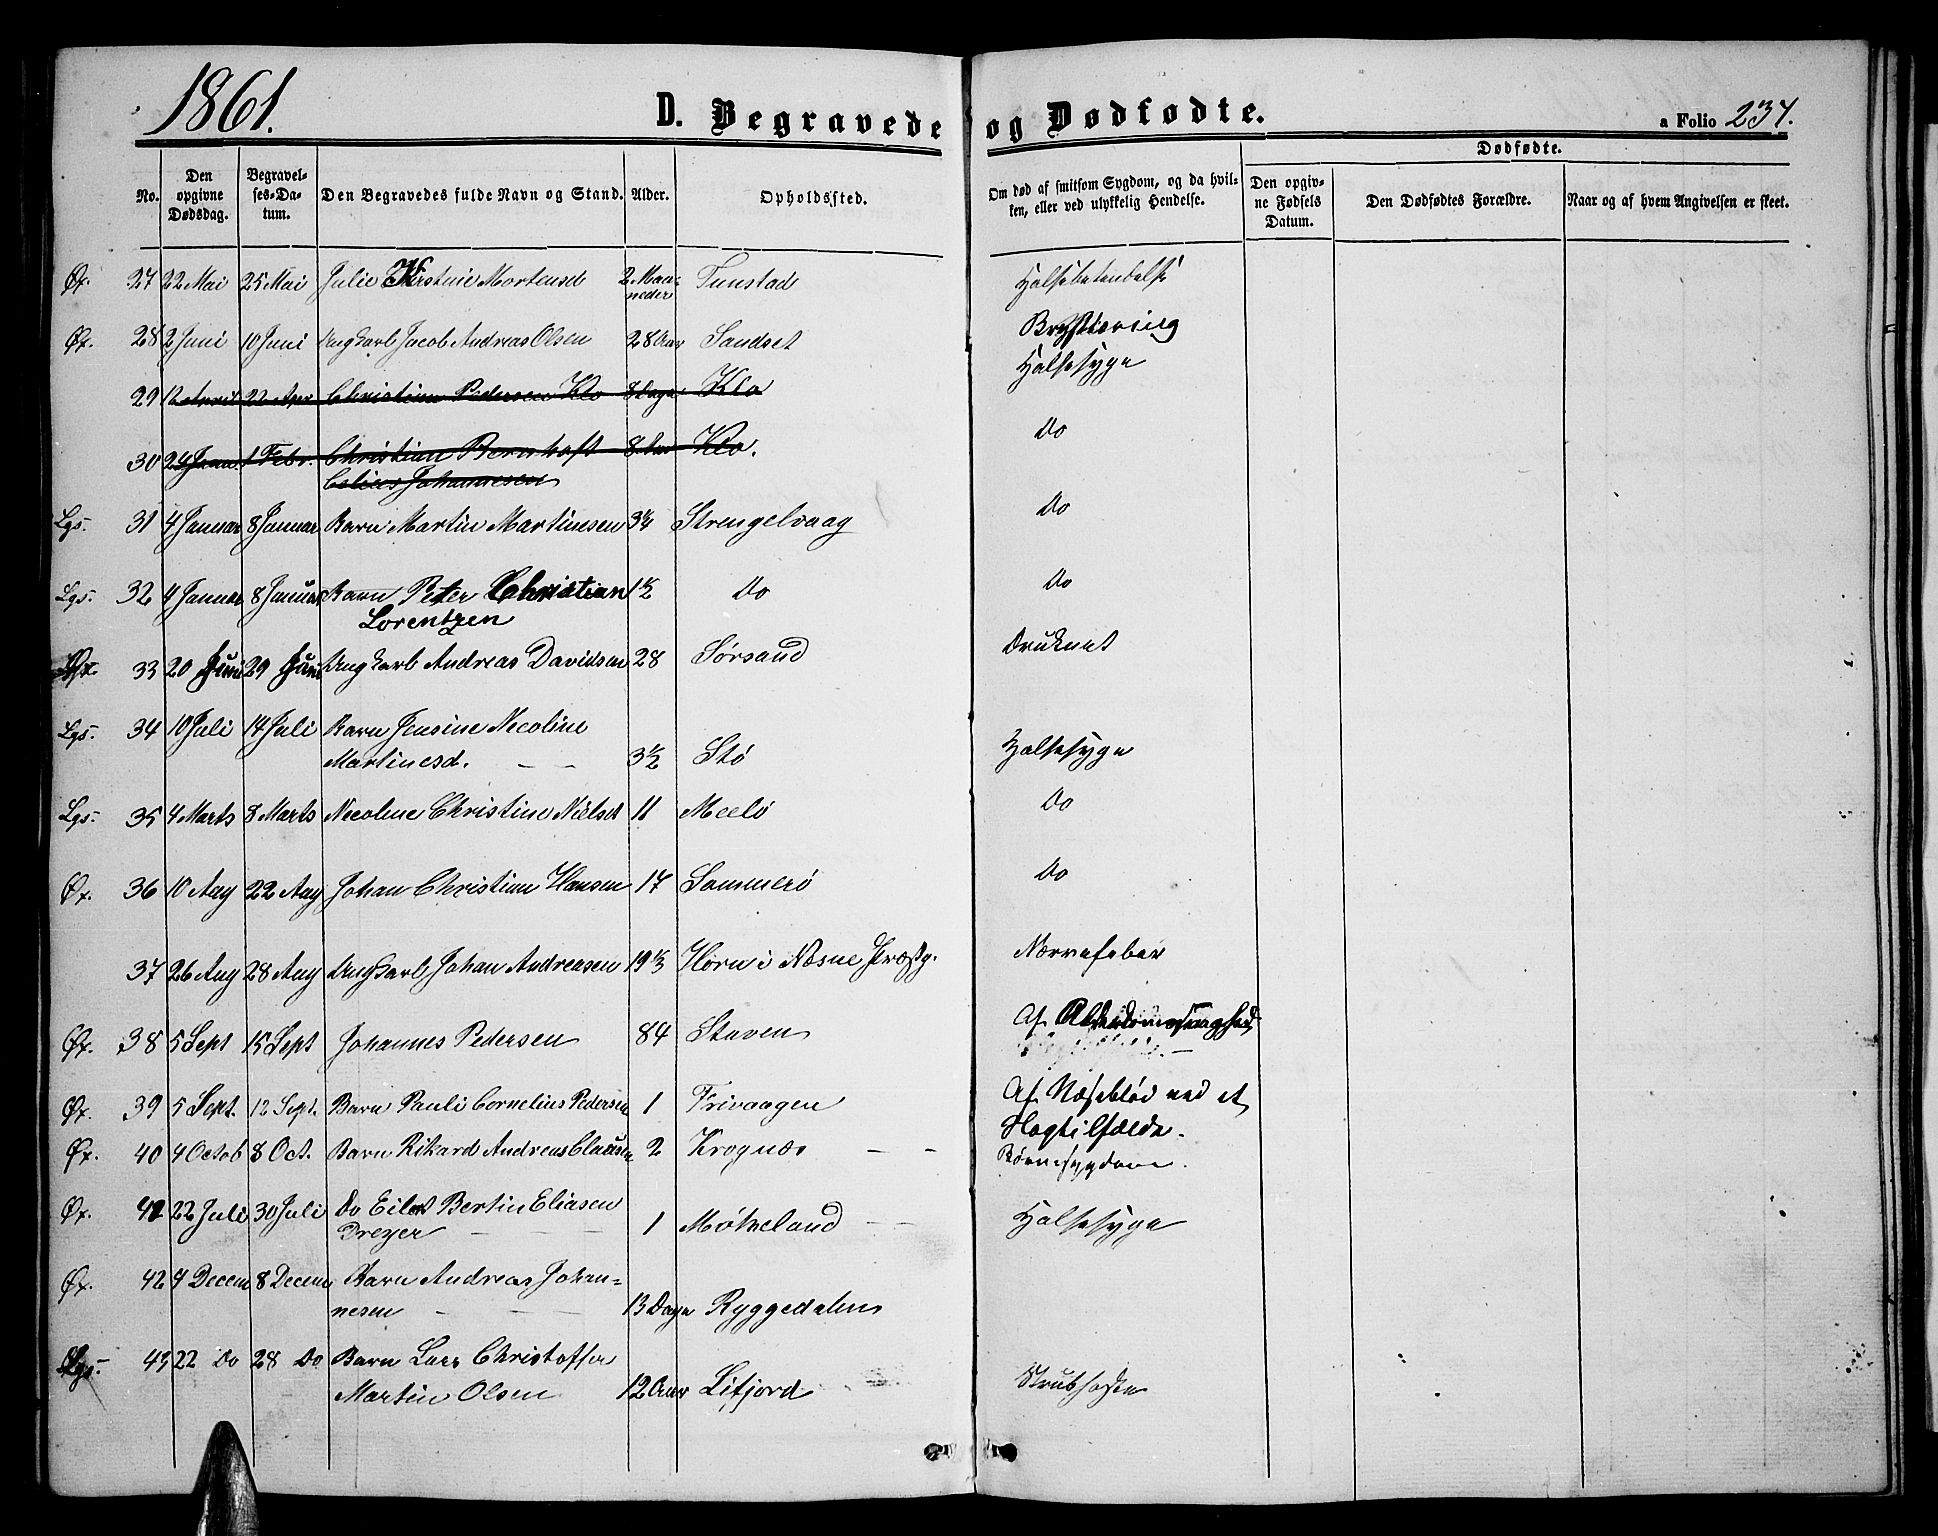 1861.
D. Begravede og Dødfødte.
a Folio 237.
No.
Den opgivne Dødsdag.
Begravelses-Datum.
Den Begravedes fulde Navn og Stand.
Alder.
Opholdssted.
Om død af smitsom Sygdom, og da hvilken, eller ved ulykkelig Hendelse.
Dødfødte.
Den opgivne Fødsels Datum.
Den Dødfødtes Forældre.
Naar og af hvem Angivelsen er skeet.
Øx. 27 22 Mai 25 Mai Julie Kirstine Mortensd 2 Maaneder Tunstad Halsebetendelse
Øx. 28 2 Juni 10 Juni Ungkarl Jacob Andreas Olsen 28 Aar Sandset Brystværing
29 12 April 22 Apr Christian Pedersen Klo 8 Dage Klo Halsesyge
30 24 Janu. 1 Febr. Christian Bernhoft 8 Aar Klo. Do
Celius Johannesen
Lgs. 31 4 Januar 8 Januar Barn Martin Martinsen 3¼ Strengelvaag Do
Lgs. 32 4 Januar 8 Januar Barn Peter Christian 1½ Do Do
Lorentzen
Øx. 33 20 Juni 29 Juni Ungkarl Andreas Davidsen 28 Sørsand Druknet
Lgs. 34 10 Juli 14 Juli Barn Jensine Nicoline
Martinesd. 3½ Stø Halsesyge
Lgs. 35 4 Marts 8 Marts Nicoline Christine Nielsd 11 Meelø Do
Øx. 36 10 Aug 22 Aug Johan Christian Hansen 17 Sommerø Do
37 26 Aug 28 Aug Ungkarl Johan Andreasen 19⅓ Horn i Næsne Præstg. Nervefeber
Øx. 38 5 Sept 15 Sept Johannes Pedersen 84 Staven Af Alderdomssvaghed
Øx. 39 5 Sept. 12 Sept. Barn Pauli Cornelius Pedersen 1 Frivaagen Af Næseblod ved et
Slagtilfælde.
Øx. 40 4 Octob 8 Oct. Barn Rikard Andreas Clausen 2 Krognæs - - Børnesygdom.
Øx. 41 22 Juli 30 Juli Do Eilert Bertin Eliasen
Dreyer 1 Møkeland - - Halsesyge
Øx. 42 4 Decem 8 Decem Barn Andreas Johan=
nesen 13 Dage Ryggedalen
Lgs. 43 22 Do 28 Do Barn Lars Christoffer
Martin Olsen 12 Aar Lifjord Strubehoste